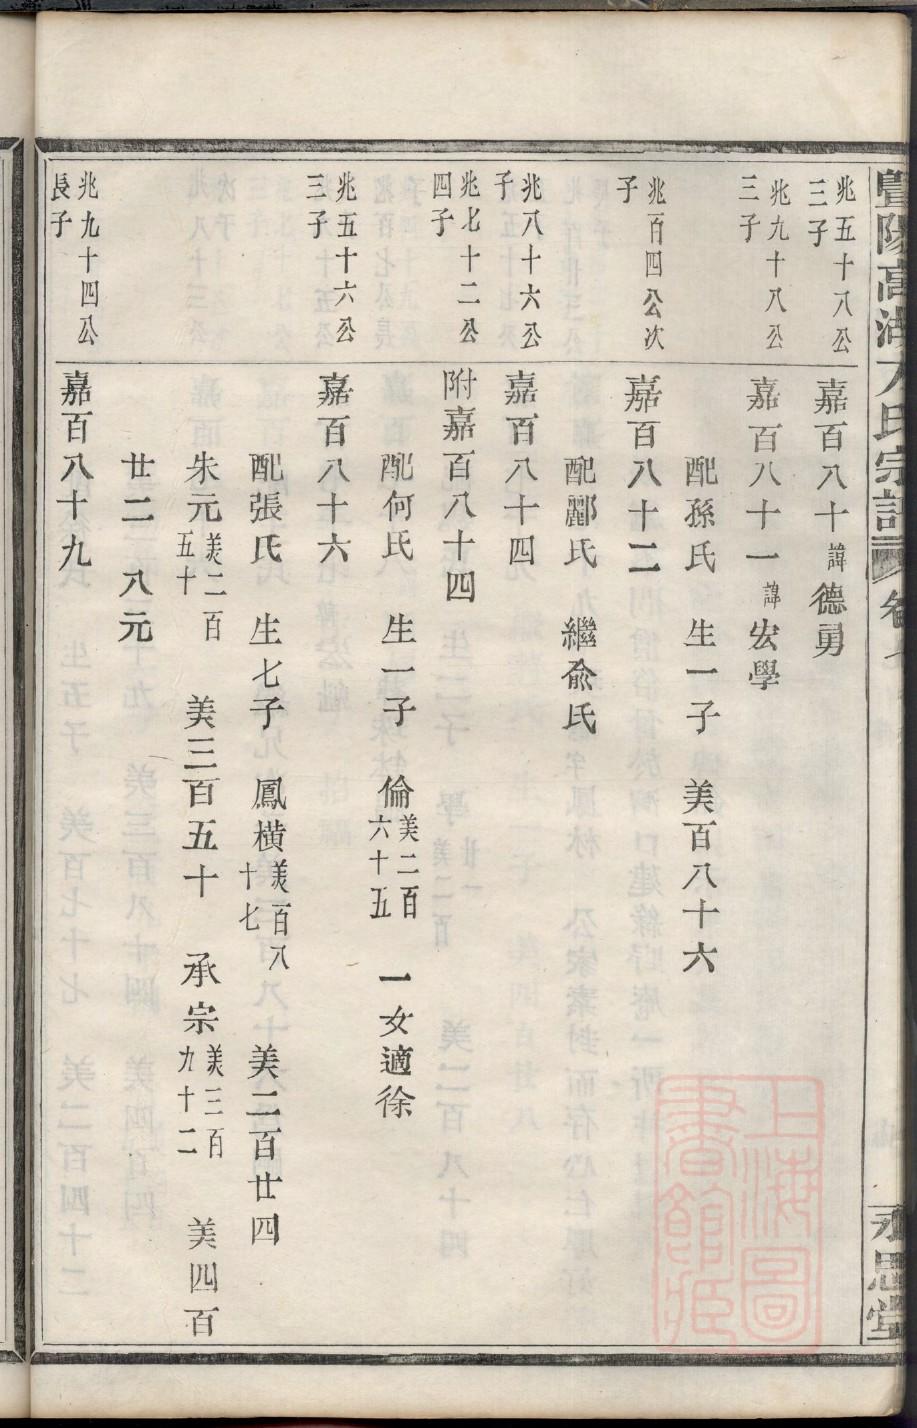 暨陽高湖方氏宗譜 卷七
永思堂
兆五十八公三子
嘉百八十 諱德勇
兆九十八公三子
嘉百八十一 諱宏學
配孫氏 生一子 美百八十六
兆百四公次子
嘉百八十二
配酈氏 繼俞氏
兆八十六公子
嘉百八十四
兆七十二公四子
附嘉百八十四
配何氏 生一子 倫 美二百六十五 一女適徐
兆五十六公三子
嘉百八十六
配張氏 生七子 鳳橫 美百八十七 美二百廿四
朱元 美二百五十 美三百五十 承宗 美三百九十二 美四百
廿二 八元
兆九十四公長子
嘉百八十九
上海圖書館藏